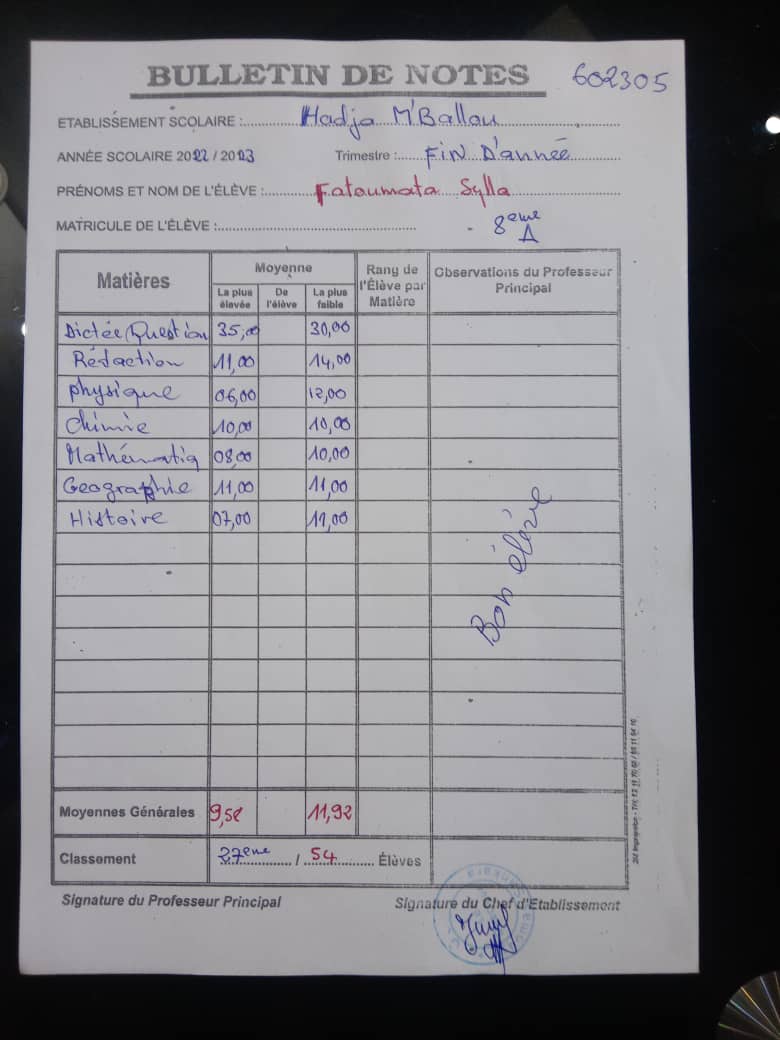 BULLETIN DE NOTES 602305
ETABLISSEMENT SCOLAIRE : Hadja M'Ballou
ANNÉE SCOLAIRE 2022 / 2023 Trimestre : FIN D'année
PRÉNOMS ET NOM DE L'ÉLÈVE : Fatoumata Sylla
MATRICULE DE L'ÉLÈVE : 8eme A
Matières Moyenne Rang de l'Élève par Matière Observations du Professeur Principal
La plus élevée De l'élève La plus faible
Dictée/Question 35,00 30,00
Rédaction 11,00 14,00
physique 06,00 12,00
chimie 10,00 10,00
Mathématiq 08,00 10,00
Geographie 11,00 11,00
Histoire 07,00 11,00
Bon élève
Moyennes Générales 9,52 11,92
Classement 27eme / 54 Élèves
Signature du Professeur Principal Signature du Chef d'Etablissement